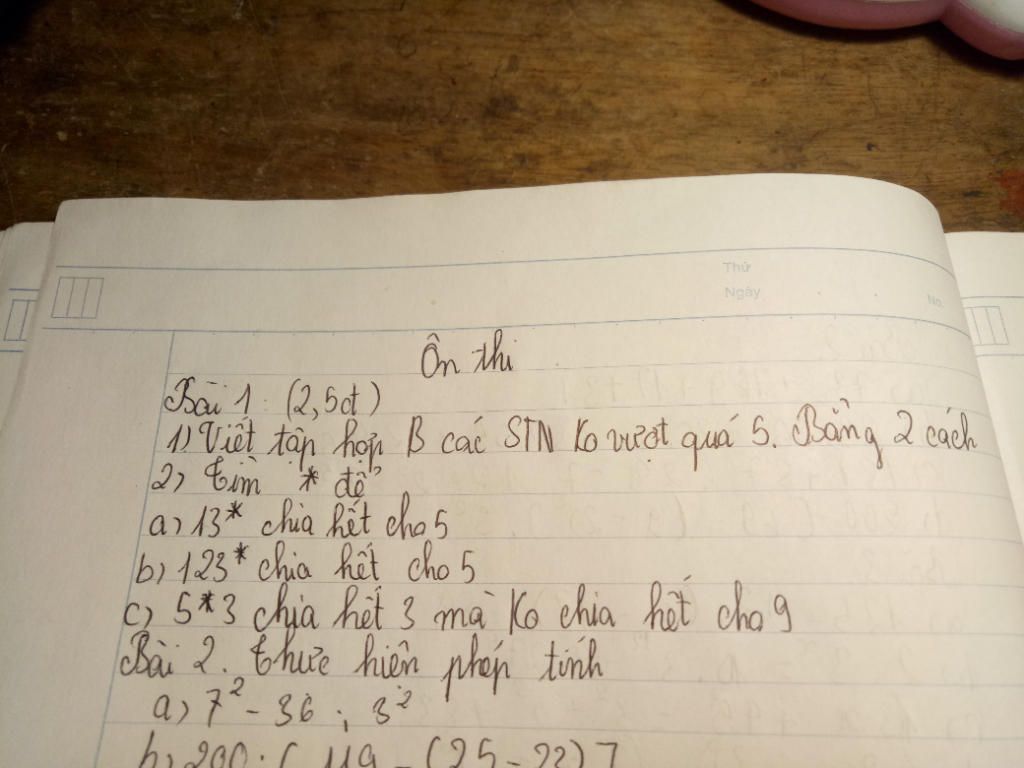 Thứ
Ngày
No.
Ôn thi
Bài 1 : (2,5đ)
1) Viết tập hợp B các STN Ko vượt quá 5. Bằng 2 cách
2) Tìm * để
a) 13* chia hết cho 5
b) 123* chia hết cho 5
c) 5*3 chia hết 3 mà Ko chia hết cho 9
Bài 2. Thực hiện phép tính
a) 7² - 36 : 3²
b) 200 : [ 119 - (25 - 22) ]